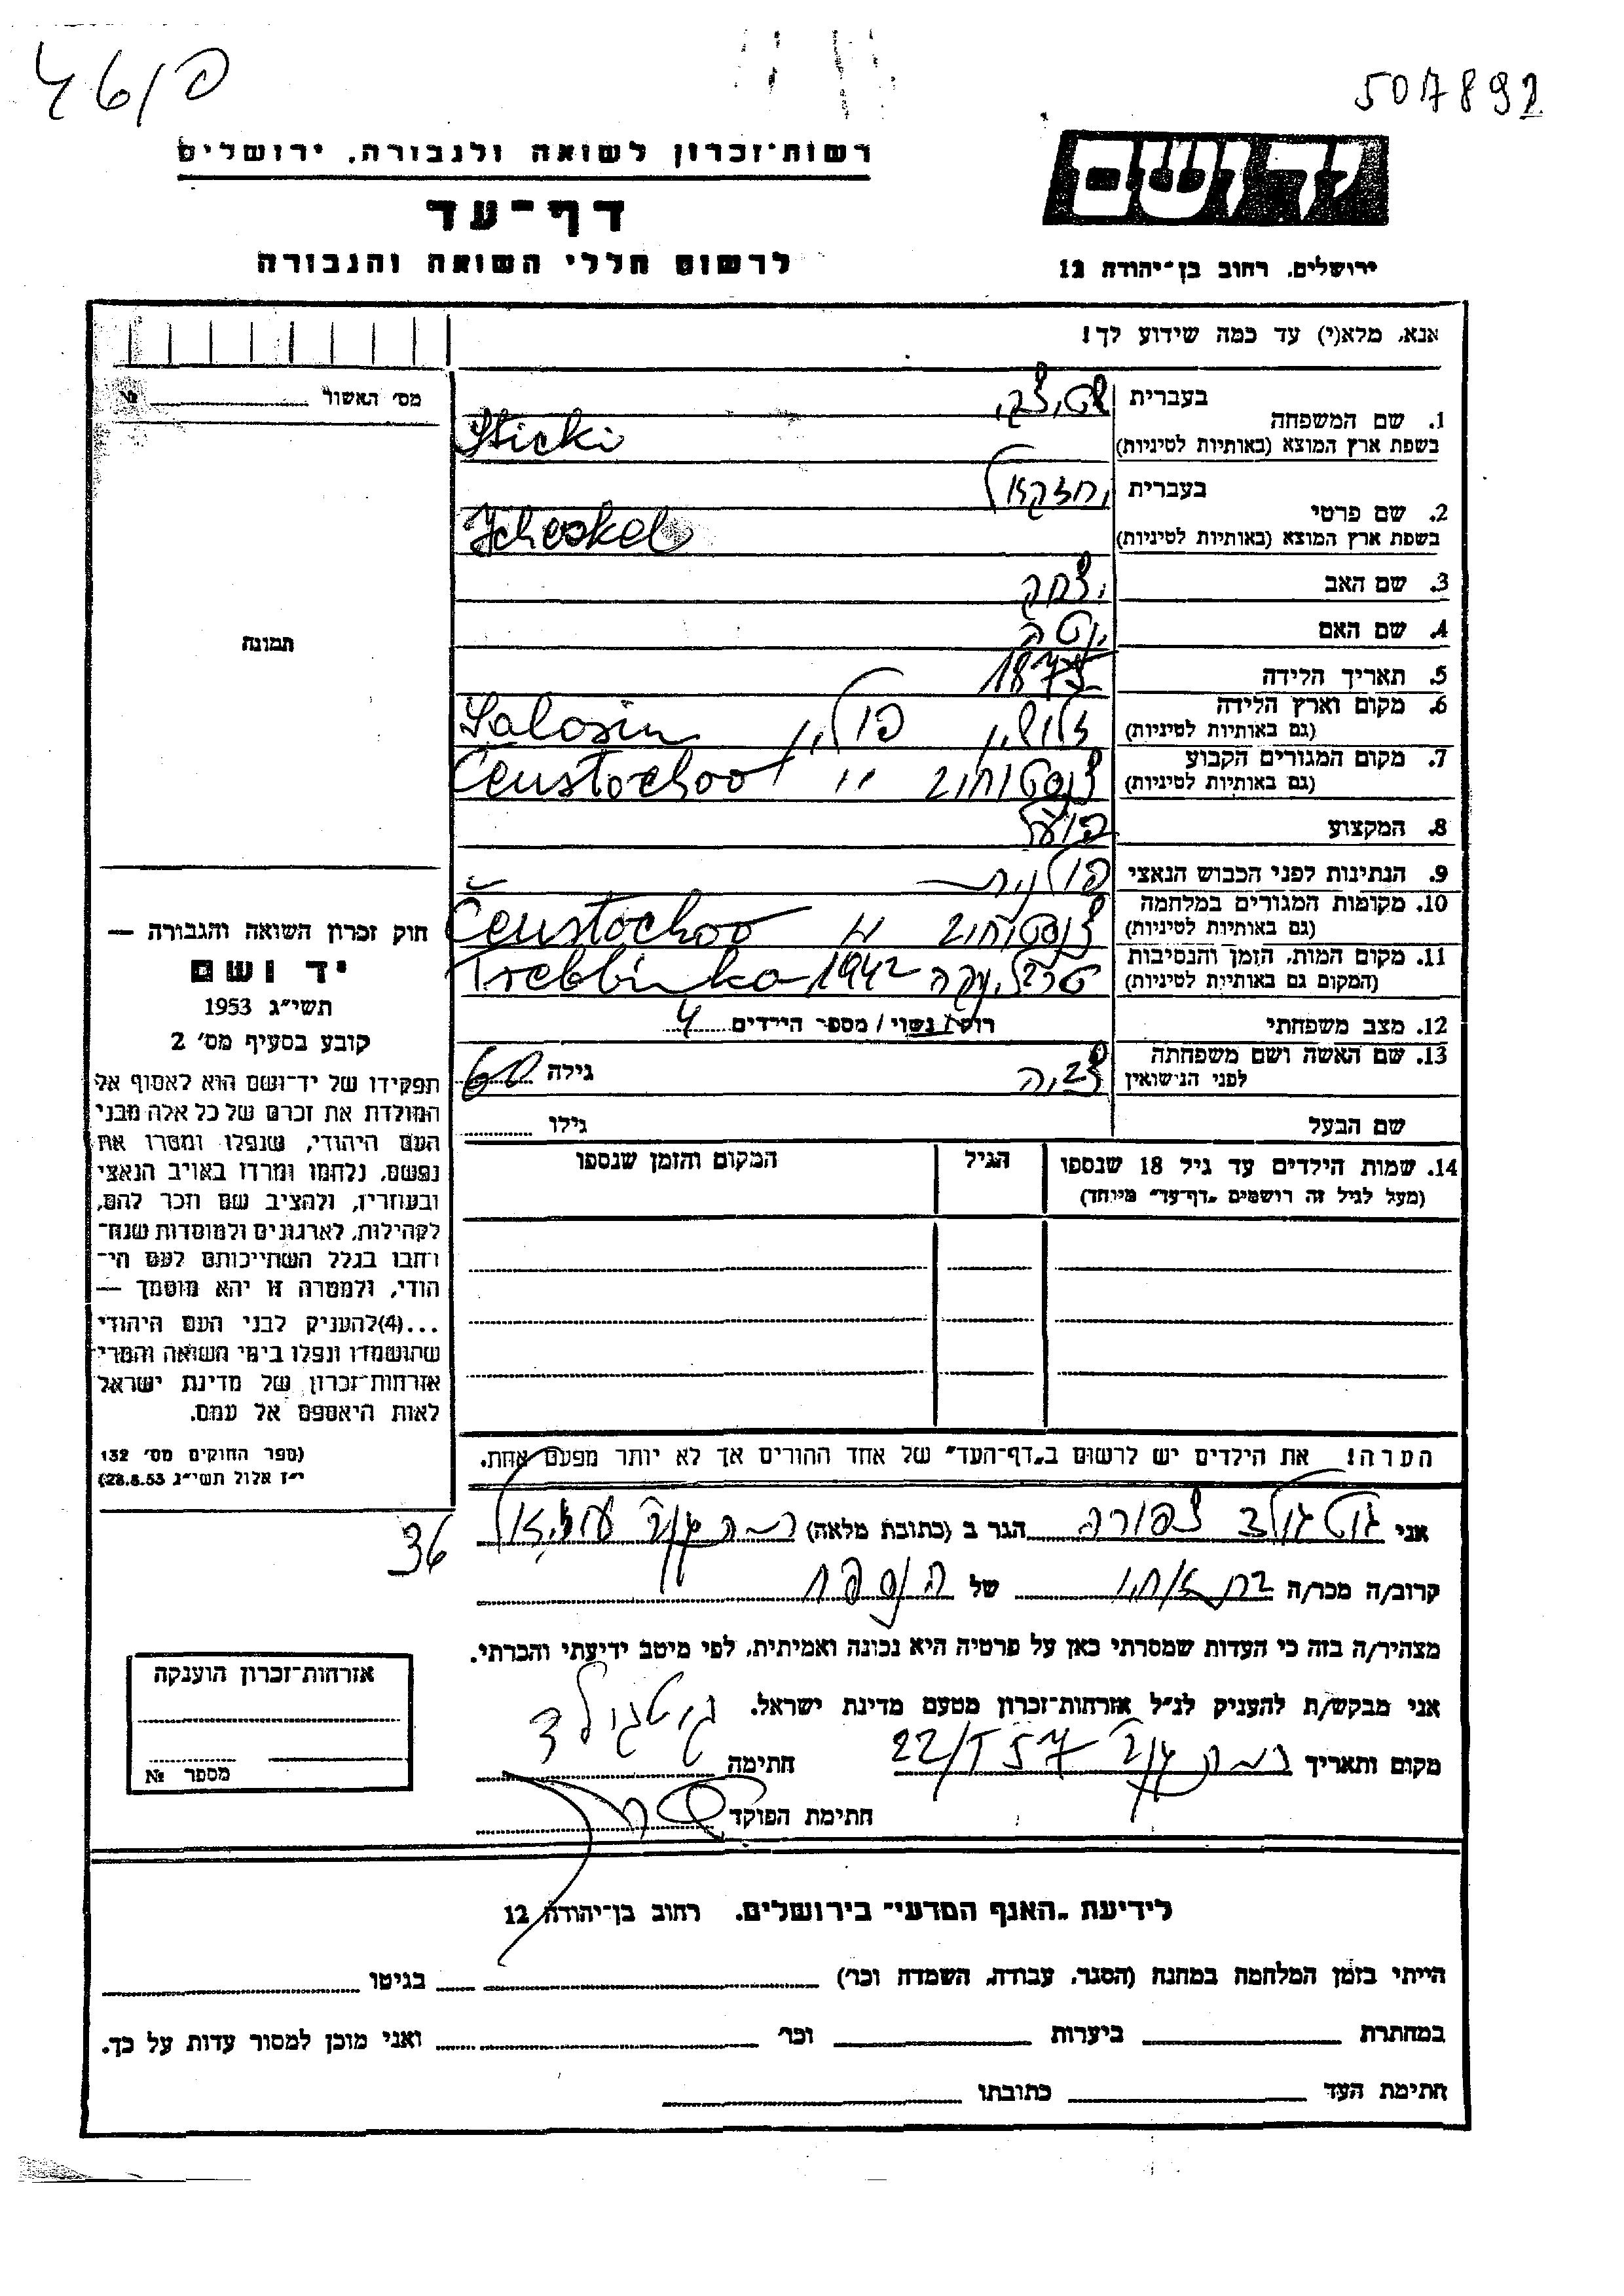 46/פ
507892
יד ושם
ירושלים, רחוב בן־יהודה 12
רשות־זכרון לשואה ולגבורה, ירושלים
דף־עד
לרשום חללי השואה והגבורה
אנא, מלא(י) עד כמה שידוע לך!
מס׳ האשור
1. שם המשפחה בעברית שטיצקי
בשפת ארץ המוצא (באותיות לטיניות) Sticki
2. שם פרטי בעברית יחזקאל
בשפת ארץ המוצא (באותיות לטיניות) Jcheskel
3. שם האב יצחק
4. שם האם יוטה
5. תאריך הלידה 1875
6. מקום וארץ הלידה
(גם באותיות לטיניות) פולין
7. מקום המגורים הקבוע
(גם באותיות לטיניות) צ׳נסטוחוב " Censtochoo
8. המקצוע פועל
9. הנתינות לפני הכבוש הנאצי פולנית
10. מקומות המגורים במלחמה
(גם באותיות לטיניות) צ׳נסטוחוב " Censtochoo
11. מקום המות, הזמן והנסיבות
(המקום גם באותיות לטיניות) טרבלינקה 1942 Trebbinka
12. מצב משפחתי רווק / נשוי / מספר הילדים 4
13. שם האשה ושם משפחתה
לפני הנישואין צביה גילה 60
שם הבעל גילו
14. שמות הילדים עד גיל 18 שנספו
(מעל לגיל זה רושמים „דף־עד״ מיוחד)
הגיל
המקום והזמן שנספו
הערה! את הילדים יש לרשום ב„דף־העד״ של אחד ההורים אך לא יותר מפעם אחת.
תמונה
חוק זכרון השואה והגבורה —
יד ושם
תשי״ג 1953
קובע בסעיף מס׳ 2
תפקידו של יד־ושם הוא לאסוף אל
המולדת את זכרם של כל אלה מבני
העם היהודי, שנפלו ומסרו את
נפשם, נלחמו ומרדו באויב הנאצי
ובעוזריו, ולהציב שם וזכר להם,
לקהילות, לארגונים ולמוסדות שנח־
רבו בגלל השתייכותם לעם הי־
הודי, ולמטרה זו יהא מוסמך —
...(4) להעניק לבני העם היהודי
שהושמדו ונפלו בימי השואה והמרי
אזרחות־זכרון של מדינת ישראל
לאות היאספם אל עמם.
(ספר החוקים מס׳ 132
י״ז אלול תשי״ג 28.8.53)
אני גוטגולד צפורה הגר ב (כתובת מלאה) רמת גן עוזיאל
36
קרוב/ה מכר/ה בת אחיו של הנספה
מצהיר/ה בזה כי העדות שמסרתי כאן על פרטיה היא נכונה ואמיתית, לפי מיטב ידיעתי והכרתי.
אני מבקש/ת להעניק לנ״ל אזרחות־זכרון מטעם מדינת ישראל.
מקום ותאריך רמת גן 22/I 57 חתימה גוטגולד
חתימת הפוקד
אזרחות־זכרון הוענקה
מספר №
לידיעת „האגף המדעי״ בירושלים, רחוב בן־יהודה 12
הייתי בזמן המלחמה במחנה (הסגר, עבודה, השמדה וכר׳) בגיטו
במחתרת ביערות וכר׳ ואני מוכן למסור עדות על כך.
חתימת העד כתובתו